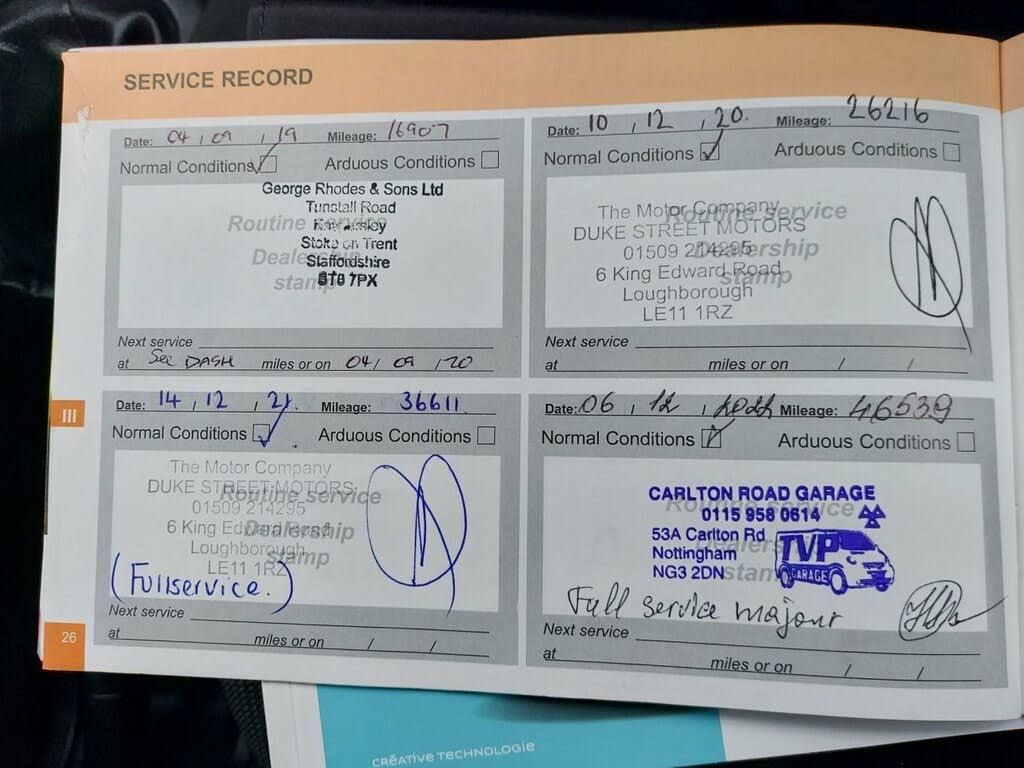 SERVICE RECORD
Date: 04 / 09 / 19 Mileage: 16907
Normal Conditions Arduous Conditions
George Rhodes & Sons Ltd
Tunstall Road
Routine service
Stoke on Trent
Dealership
Staffordshire
stamp
ST8 7PX
Next service
at See DASH miles or on 04 / 09 / 20
Date: 10 / 12 / 20. Mileage: 26216
Normal Conditions Arduous Conditions
The Motor Company
Routine service
DUKE STREET MOTORS
01509 214295
Dealership
6 King Edward Road
stamp
Loughborough
LE11 1RZ
Next service
at miles or on / /
Date: 14 / 12 / 21. Mileage: 36611
Normal Conditions Arduous Conditions
The Motor Company
DUKE STREET MOTORS
Routine service
01509 214295
6 King Edward Road
Dealership
Loughborough
stamp
LE11 1RZ
(Fullservice.)
Next service
at miles or on / /
Date: 06 / 12 / 2022 Mileage: 46539
Normal Conditions Arduous Conditions
CARLTON ROAD GARAGE
Routine service
0115 958 0614
53A Carlton Rd
Nottingham
Dealership
NG3 2DN
stamp
TVP
GARAGE
Full service majour
Next service
at miles or on / /
III
26
CRÉATIVE TECHNOLOGIE